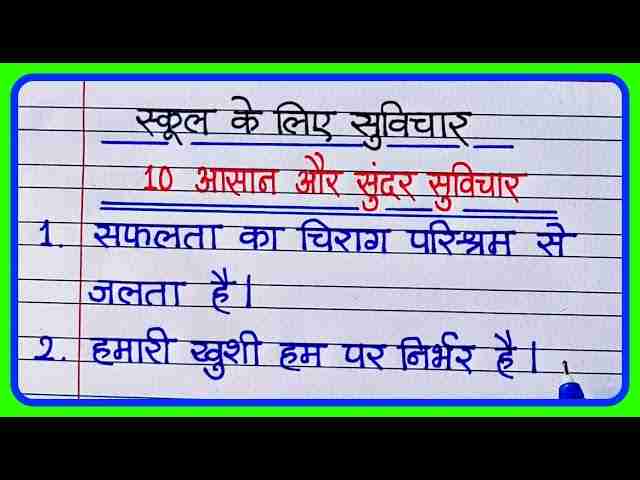 स्कूल के लिए सुविचार
10 आसान और सुंदर सुविचार
1. सफलता का चिराग परिश्रम से
जलता है।
2. हमारी खुशी हम पर निर्भर है।